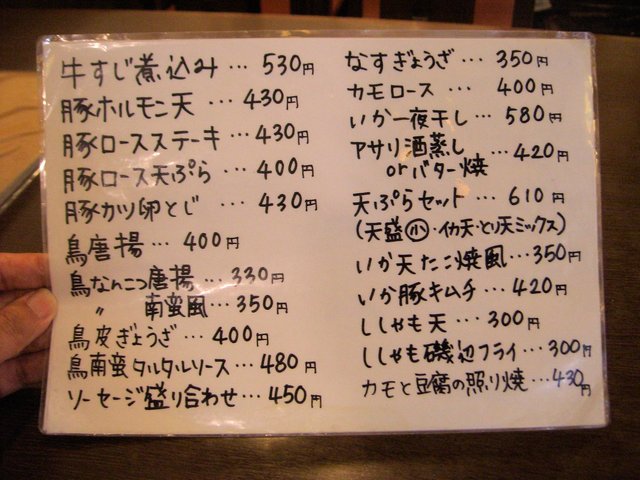 牛すじ煮込み … 530円
豚ホルモン天 … 430円
豚ロースステーキ … 430円
豚ロース天ぷら … 400円
豚カツ卵とじ … 430円
鳥唐揚 … 400円
鳥なんこつ唐揚 … 330円
〃 南蛮風 … 350円
鳥皮ぎょうざ … 400円
鳥南蛮タルタルソース … 480円
ソーセージ盛り合わせ … 450円
なすぎょうざ … 350円
カモロース … 400円
いか一夜干し … 580円
アサリ酒蒸し
orバター焼 … 420円
天ぷらセット … 610円
(天盛㊙小・イカ天・とり天ミックス)
いか天たこ焼風 … 350円
いか豚キムチ … 420円
ししゃも天 … 300円
ししゃも磯辺フライ … 300円
カモと豆腐の照り焼 … 430円